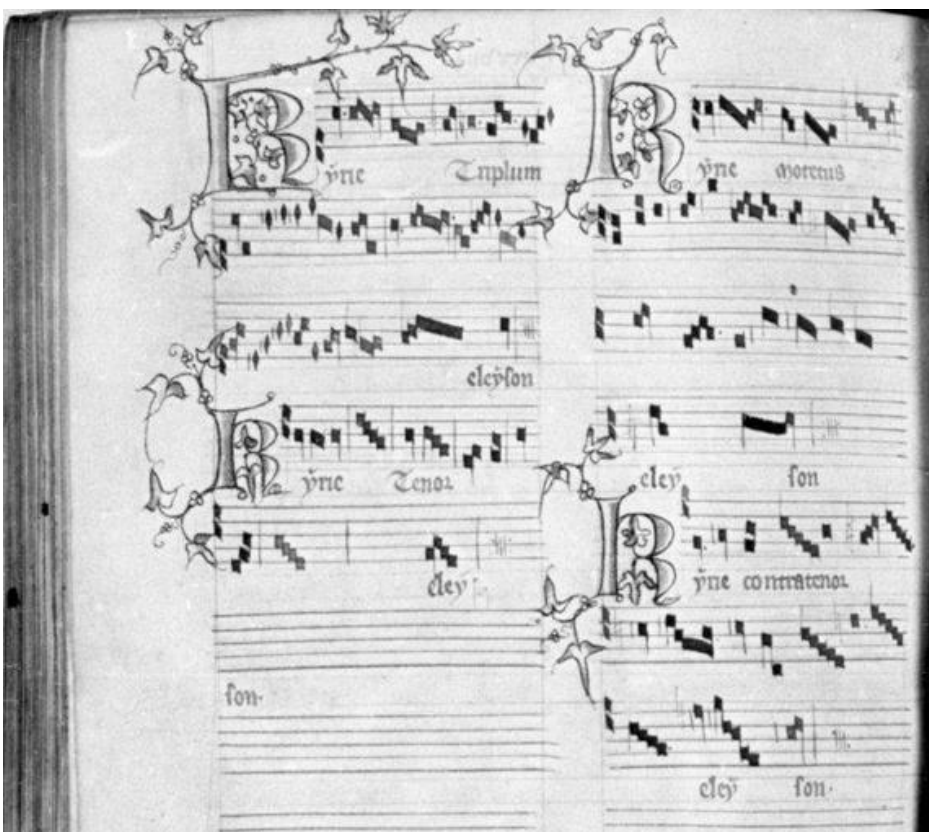 Kyrie Triplum
eleyson
Kyrie Tenor
eley
son.
Kyrie Motetus
eley son
Kyrie contratenor
eley son.